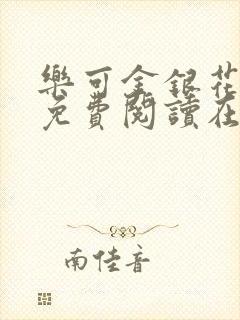 樂可金銀花
免費閱讀在
南佳音